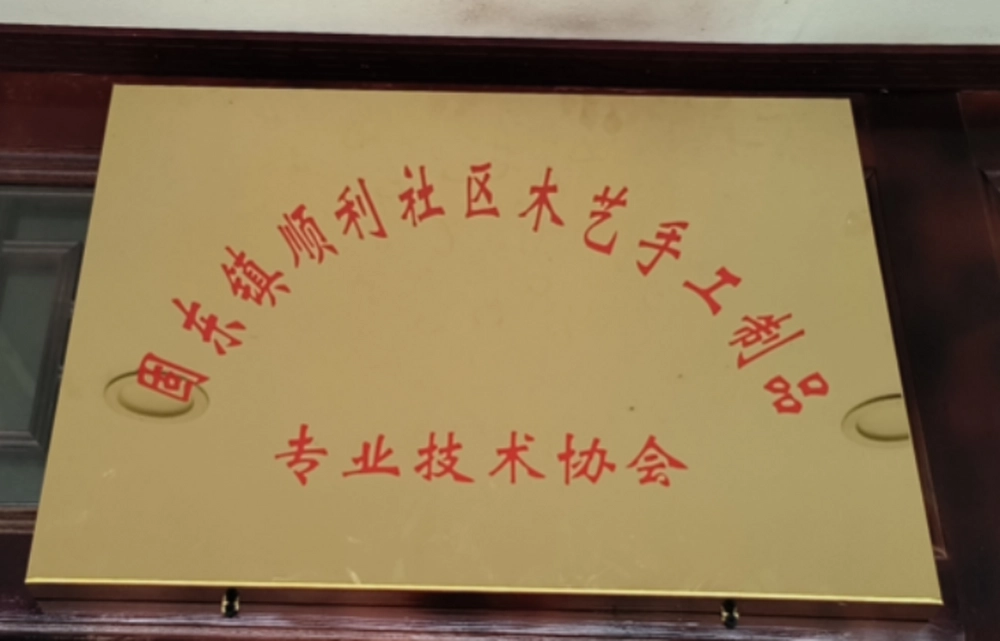 固东镇顺利社区木艺手工制品
专业技术协会